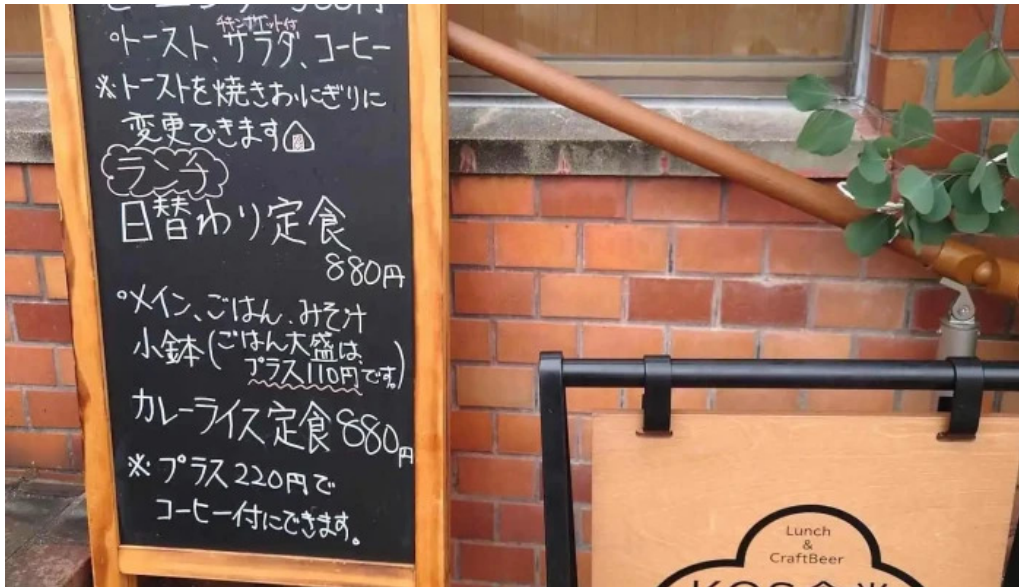 モーニング 500円
チキンナゲット付
°トースト、サラダ、コーヒー
※トーストを焼きおにぎりに
変更できます
ランチ
日替わり定食
880円
°メイン、ごはん、みそ汁
小鉢(ごはん大盛は
プラス110円です。)
カレーライス定食880円
※プラス220円で
コーヒー付にできます。
Lunch
&
CraftBeer